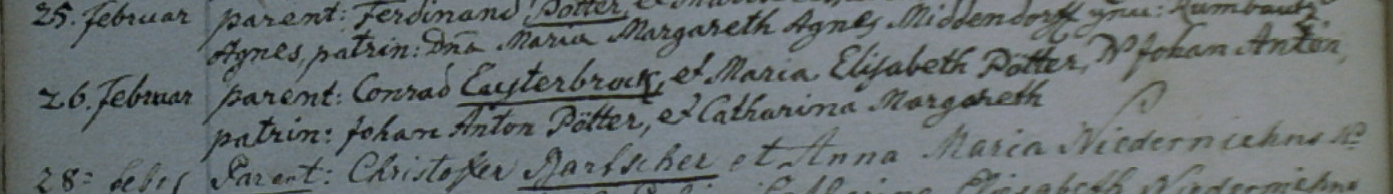 25. Februar parent: Ferdinand Pötter, et
Agnes, patrin: Dña Maria Margareth Agnes Middendorff
26. Februar parent: Conrad et Maria Elisabeth Pötter, Johan Anton,
patrin: Johan Anton Pötter, et Catharina Margareth
28 Parent: Christoffer et Anna Maria
Elisabeth